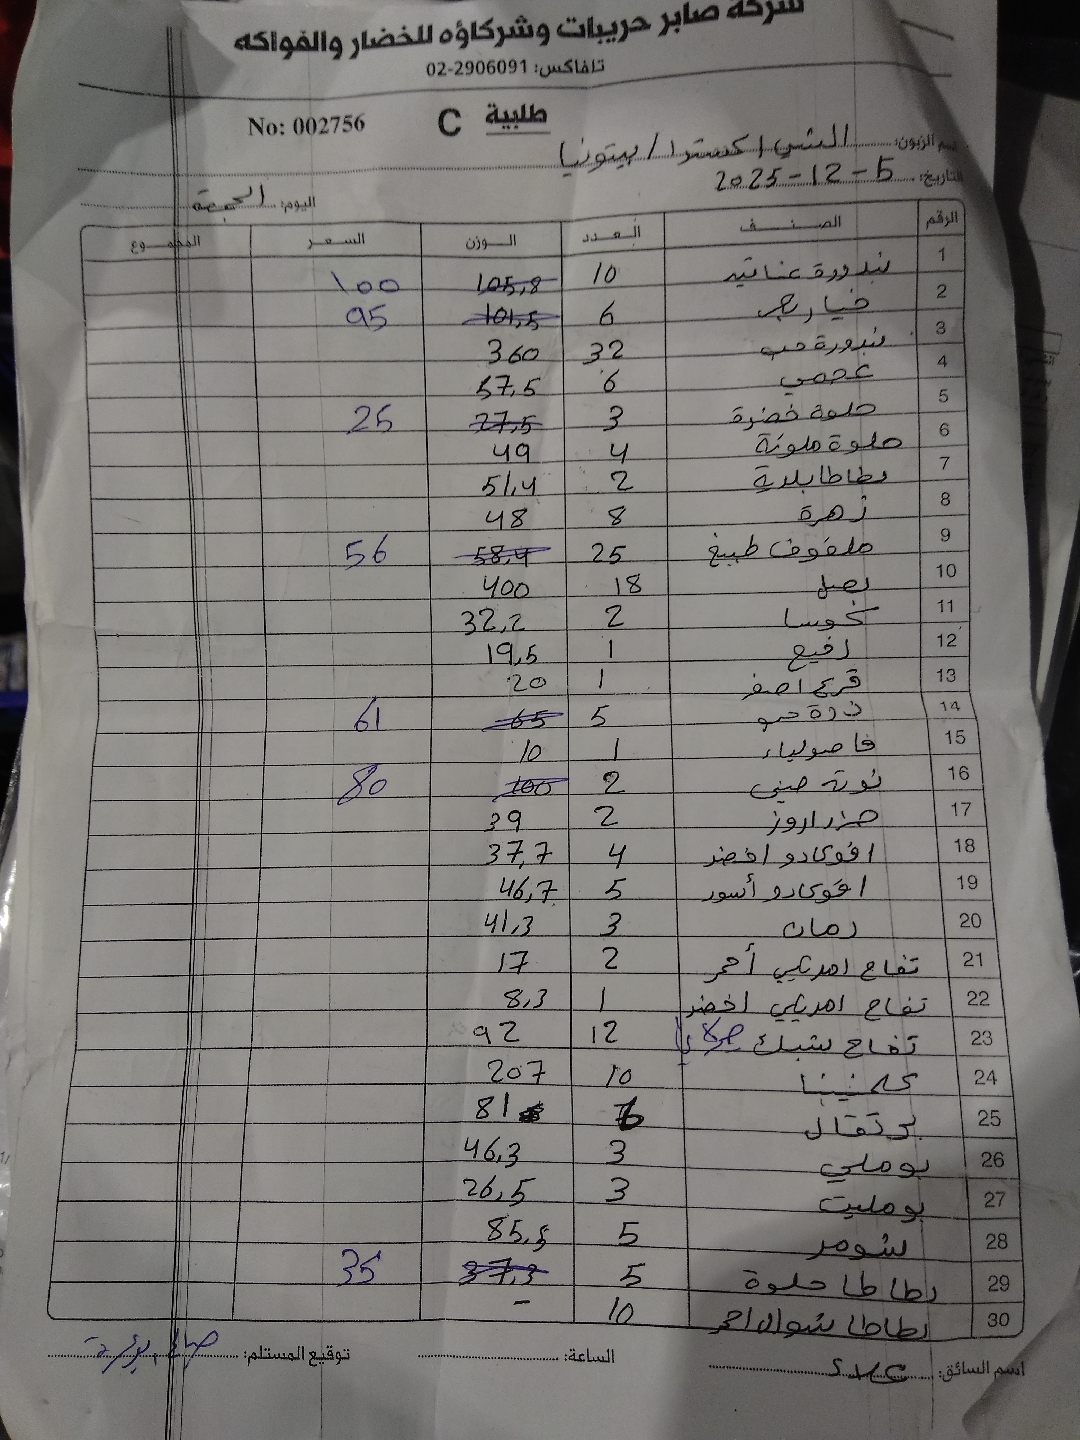 شركة صابر حريبات وشركاؤه للخضار والفواكه
تلفاكس: 02-2906091
طلبية C No: 002756
اسم الزبون: الشني اكسترا / بيتونيا
التاريخ: 5-12-2025
اليوم: الجمعة
الرقم الصنف العدد الوزن السعر المجموع
1 بندورة عناقيد 10 105,8 100
2 خيار 6 101,5 95
3 بندورة حب 32 360
4 عجمي 6 57,5
5 حلوة خضرة 3 27,5 25
6 حلوة ملونة 4 49
7 بطاطا بلدية 2 51,4
8 زهرة 8 48
9 ملفوف طبيخ 25 58,4 56
10 بصل 18 400
11 كوسا 2 32,2
12 رفيع 1 19,5
13 قرع اصفر 1 20
14 ذرة 5 65 61
15 فاصولياء 1 10
16 توتة صيني 2 100 80
17 جزر اروز 2 39
18 افوكادو اخضر 4 37,7
19 افوكادو أسود 5 46,7
20 رمان 3 41,3
21 تفاح امريكي أحمر 2 17
22 تفاح امريكي اخضر 1 8,3
23 تفاح شبك 12 92
24 كلمنتينا 10 207
25 برتقال 6 81
26 بوملي 3 46,3
27 بومليت 3 26,5
28 شومر 5 85,5
29 بطاطا حلوة 5 37,3 35
30 بطاطا شوال احمر 10 -
اسم السائق: الساعة: توقيع المستلم: